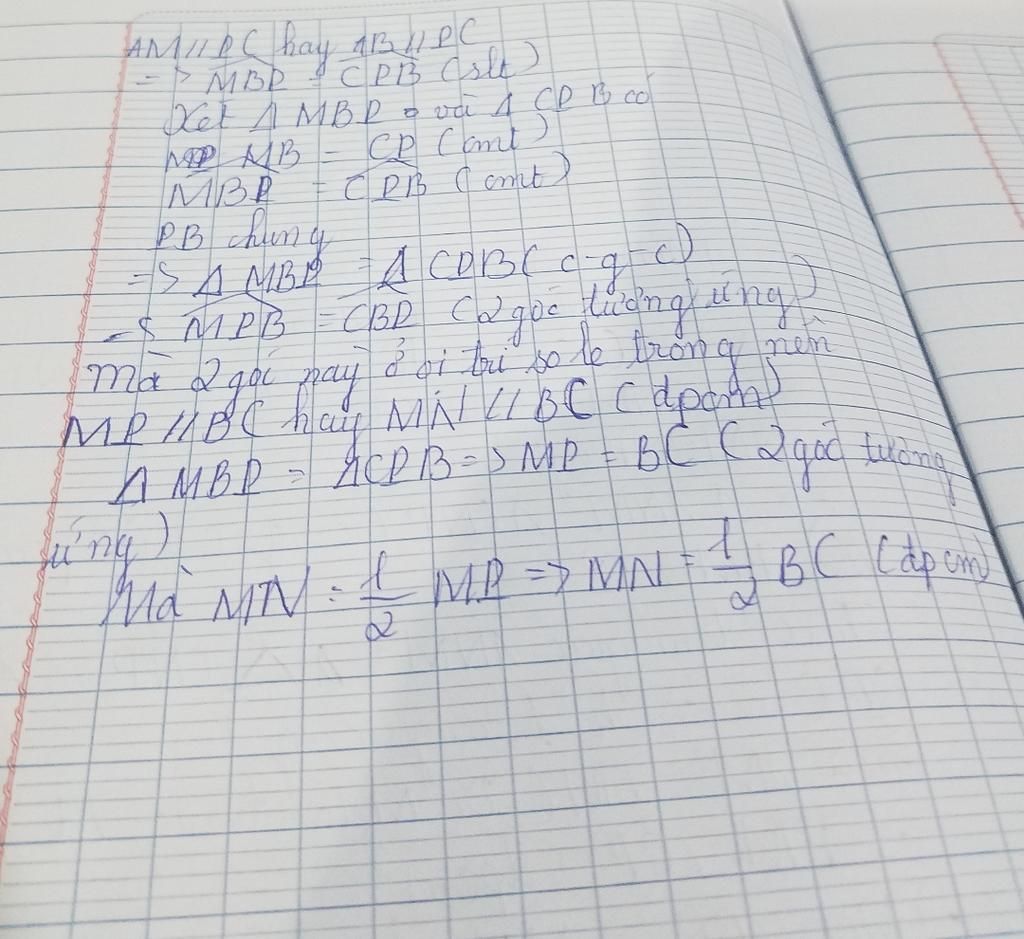 AM // PC hay AB // PC
=> MBP = CPB (slt)
Xét Δ MBP và Δ CPB có
MB = CP (cmt)
MBP = CPB (cmt)
PB chung
=> Δ MBP = Δ CPB (c-g-c)
=> MPB = CBP (2 góc tương ứng)
mà 2 góc này ở vị trí so le trong nên
MP // BC hay MN // BC (đpcm)
Δ MBP = Δ CPB => MP = BC (2 góc tương
ứng)
Mà MN = 1/2 MP => MN = 1/2 BC (đpcm)